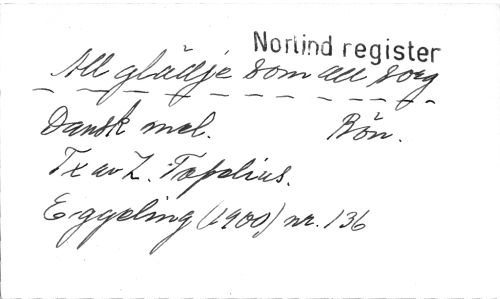 Norlind register
All glädje som all sorg
Dansk mel. Bön.
Tx av Z. Topelius.
Eggeling (1900) nr. 136